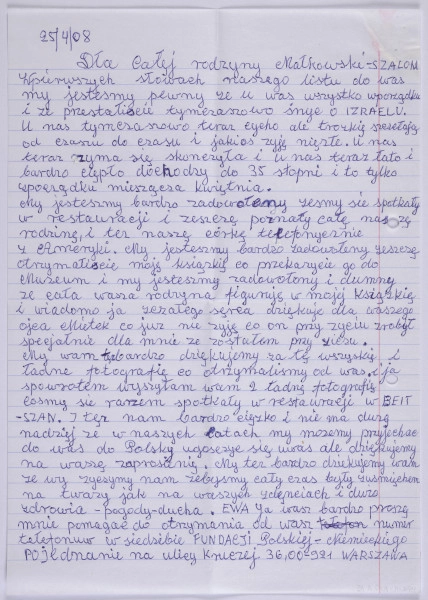 25/4/08
Dla Całej rodzyny Małkowski-SZALOM
W pierwszych słowach naszego listu do was
my jestesmy pewny ze u was wszystko wporządku
i ze przestaliscie tymczasowo śnyć o IZRAELU.
U nas tymczasowo teraz cycho ale trozkię szczelają
od czasu do czasu i jakios zyję nięzłe. U nas
teraz zyma się skonczyła i u nas teraz lato i
bardzo ciępło dochodzy do 35 stopni i to tylko
wporządku miesząca kwiętnia.
My jestesmy bardzo zadowolony zesmy sie spotkały
w restauracji i zeszcze poznały całę naszę
rodzinę, i tez naszę córkę telefonycznie
z Ameryki. My jestesmy bardzo zadowoleny zeszcze
otrymaliscie moję ksiązkię co przekazycie go do
Muzeum i my jestesmy zadowolony i dumny
ze cała wasza rodzyna figuruję w mojej ksiązkię
i wiadomo ja zezałego serca dziękuję dla waszego
ojca Mietek co juz nie zyję co on przy zyciu zrobył
specjalnie dla mnie ze zostałem przy zicu.
My wam bardzo dziękujemy za tę wszyskię i
ładnę fotografię co otrzymalismy od was. i ja
spowrotem wysyłam wam 2 ładnę fotografię
cosmy się razem spotkały w restauracji w BEIT
-SZAN. I tez nam bardzo cięzko i nie ma durą
nadzieję ze w naszych latach my mozemy przyjechac
do was do Polsky ugoszczę się uwas ale dziękujemy
na waszę zaproszenię. My tez bardzo dziękujemy wam
ze wy zycsymy nam zebysmy cały czas były zusmięchem
na twarzy jak na waszych zdęncięciach i duzo
zdrowia - pogody-ducha. EWA ja wasz bardzo proszą
mnie pomagać do otrymania od wasz numer
telefonuw w siedzibie FUNDACJI Polskiej-Niemieckiego
POJednanie na ulicy Kruczej 36,00-921 WARSZAWA